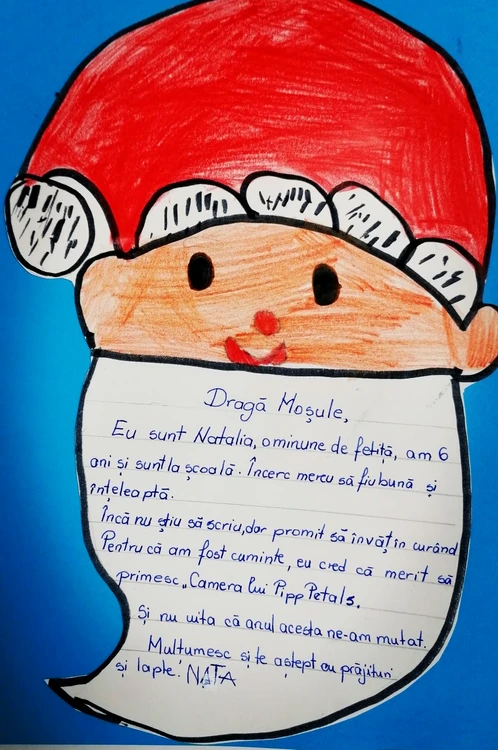 Dragă Moșule,
Eu sunt Natalia, o minune de fetiță, am 6
ani și sunt la școală. Încerc mereu să fiu bună și
înțeleaptă.
Încă nu știu să scriu, dar promit să învăț în curând
Pentru că am fost cuminte, eu cred că merit să
primesc „Camera lui Pipp Petals.
Și nu uita că anul acesta ne-am mutat.
Mulțumesc și te aștept cu prăjituri
și lapte! NATA